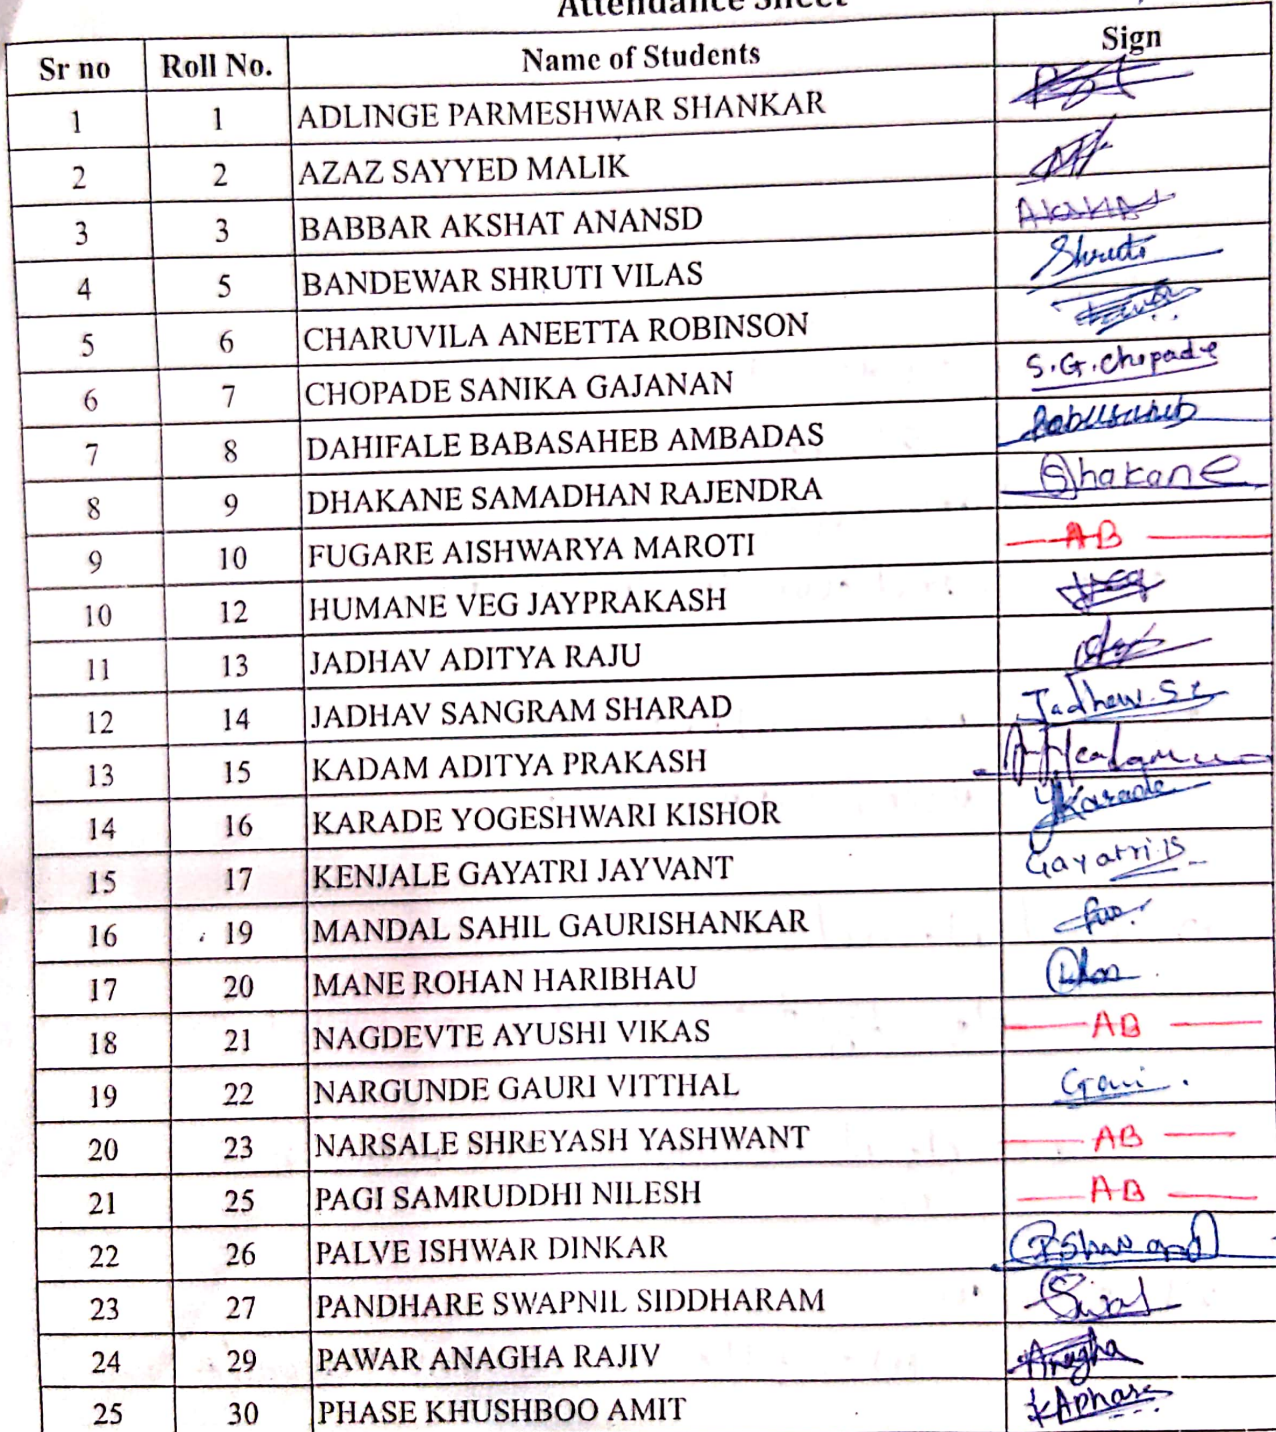 Attendance Sheet
Sr no Roll No. Name of Students Sign
1 1 ADLINGE PARMESHWAR SHANKAR
2 2 AZAZ SAYYED MALIK
3 3 BABBAR AKSHAT ANANSD
4 5 BANDEWAR SHRUTI VILAS Shruti
5 6 CHARUVILA ANEETTA ROBINSON
6 7 CHOPADE SANIKA GAJANAN S.G.Chopade
7 8 DAHIFALE BABASAHEB AMBADAS
8 9 DHAKANE SAMADHAN RAJENDRA
9 10 FUGARE AISHWARYA MAROTI AB
10 12 HUMANE VEG JAYPRAKASH
11 13 JADHAV ADITYA RAJU
12 14 JADHAV SANGRAM SHARAD
13 15 KADAM ADITYA PRAKASH
14 16 KARADE YOGESHWARI KISHOR YKarade
15 17 KENJALE GAYATRI JAYVANT
16 19 MANDAL SAHIL GAURISHANKAR
17 20 MANE ROHAN HARIBHAU
18 21 NAGDEVTE AYUSHI VIKAS AB
19 22 NARGUNDE GAURI VITTHAL
20 23 NARSALE SHREYASH YASHWANT AB
21 25 PAGI SAMRUDDHI NILESH AB
22 26 PALVE ISHWAR DINKAR
23 27 PANDHARE SWAPNIL SIDDHARAM
24 29 PAWAR ANAGHA RAJIV Anagha
25 30 PHASE KHUSHBOO AMIT